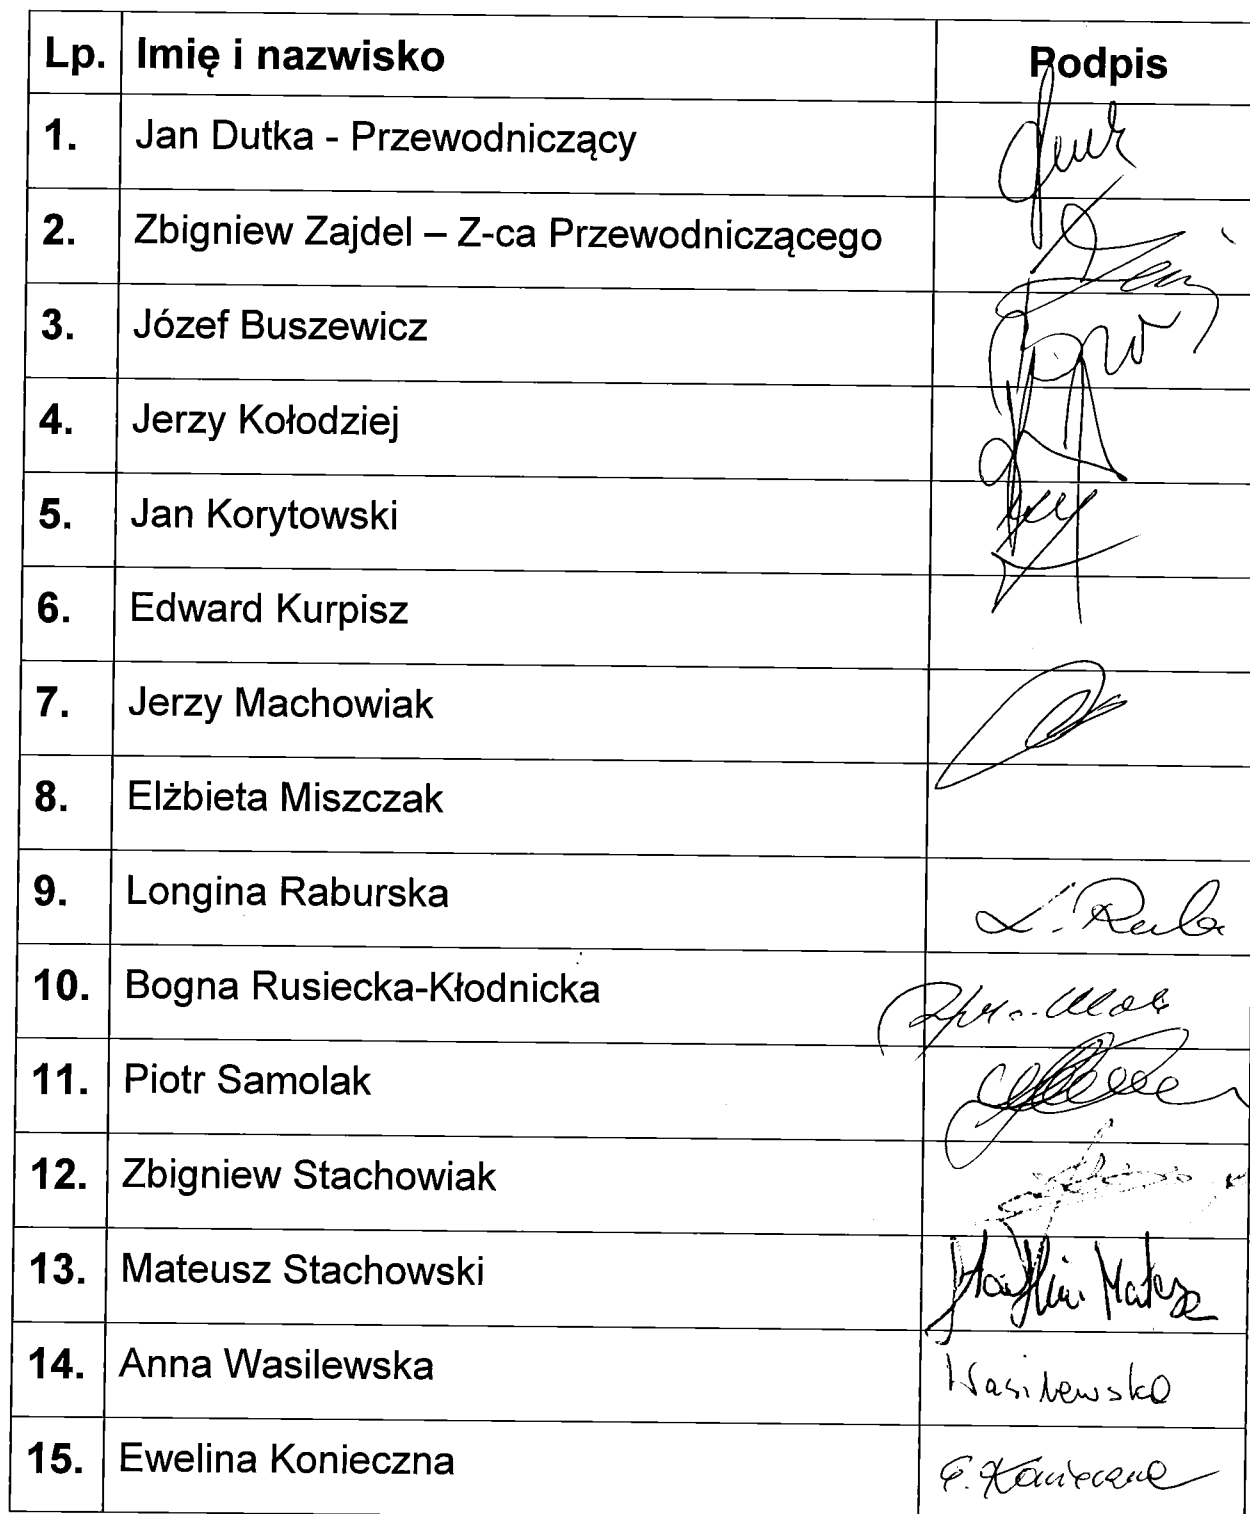 Lp. Imię i nazwisko Podpis
1. Jan Dutka - Przewodniczący
2. Zbigniew Zajdel – Z-ca Przewodniczącego
3. Józef Buszewicz
4. Jerzy Kołodziej
5. Jan Korytowski
6. Edward Kurpisz
7. Jerzy Machowiak
8. Elżbieta Miszczak
9. Longina Raburska
10. Bogna Rusiecka-Kłodnicka
11. Piotr Samolak
12. Zbigniew Stachowiak
13. Mateusz Stachowski
14. Anna Wasilewska Wasilewska
15. Ewelina Konieczna E. Konieczna